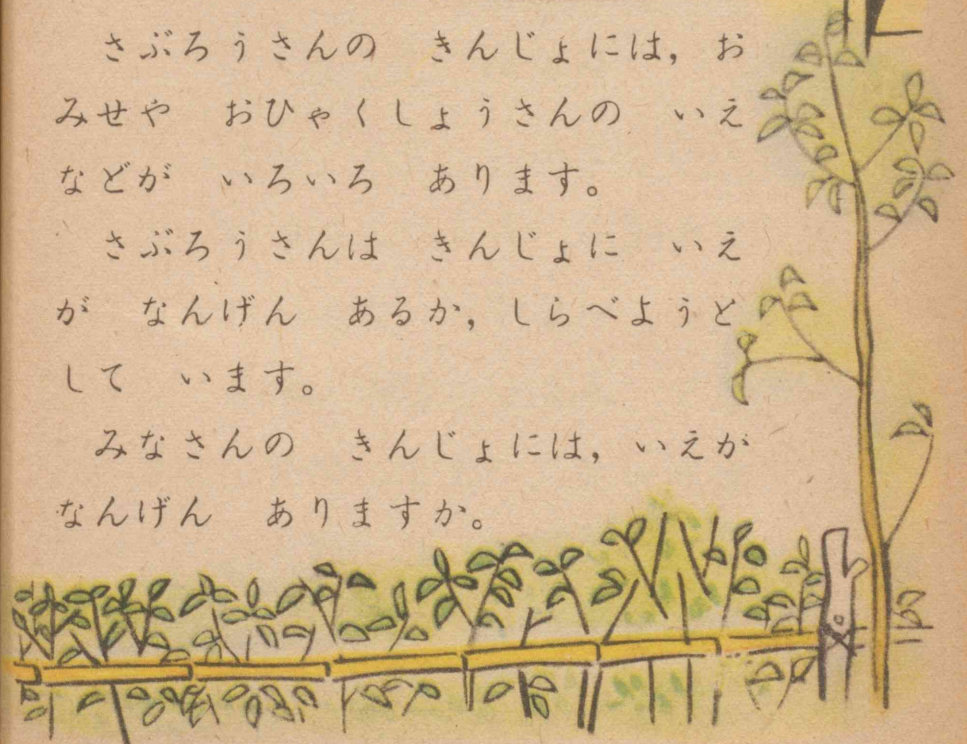 さぶろうさんの　きんじょには，お
みせや　おひゃくしょうさんの　いえ
などが　いろいろ　あります。
さぶろうさんは　きんじょに　いえ
が　なんげん　あるか，しらべようと
して　います。
みなさんの　きんじょには，いえが
なんげん　ありますか。